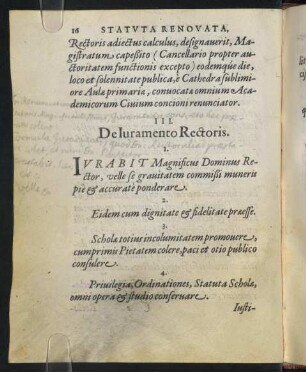 16 STATVTA RENOVATA,
Rectoris adiectus calculus, designauerit, Ma-
gistratum capessito (Cancellario propter au-
ctoritatem functionis excepto) eodemque die,
loco et solennitate publica, è Cathedra sublimi-
ore Aulæ primaria, conuocata omnium Aca-
demicorum Ciuium concioni renunciator.
III.
De Iuramento Rectoris.
1.
IVRABIT Magnificus Dominus Re-
ctor, velle se grauitatem commissi muneris
piè & accuratè ponderare.
2.
Eidem cum dignitate & fidelitate præesse.
3.
Scholæ totius incolumitatem promouere,
cumprimis Pietatem colere, paci et otio publico
consulere.
4.
Priuilegia, Ordinationes, Statuta Scholæ,
omni opera & studio conseruare.
Iusti-